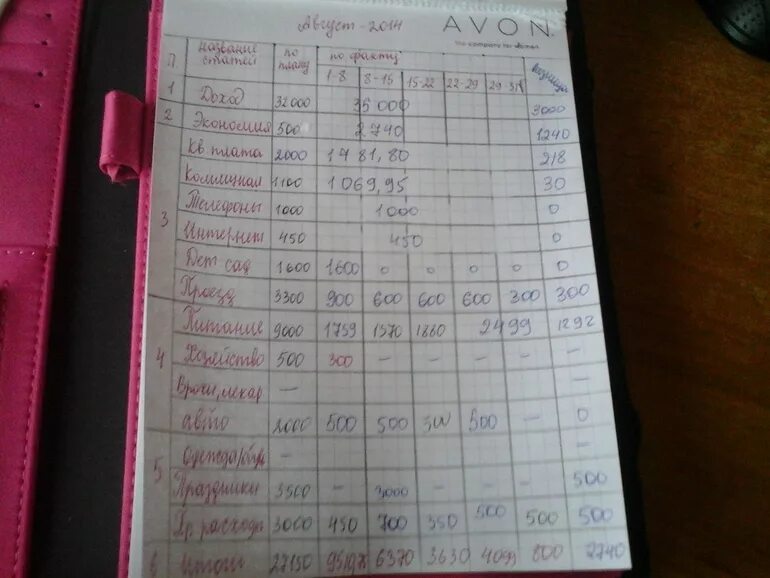 Август - 2014 AVON
the company for women
П. название статей по плану по факту разница
1-8 8-15 15-22 22-29 29-31
1 Доход 32000 35 000 3000
2 Экономия 500 2740 1240
Кв. плата 2000 1481,80 218
Коммунал 1100 1069,95 30
Телефоны 1000 1000 0
3 Интернет 450 450 0
Дет. сад 1600 1600 0 0 0 0 0
Проезд 3300 900 600 600 600 300 300
Питание 9000 1759 1570 1880 2499 1292
4 Хозяйство 500 300 - - - - -
Врачи, лекар - -
авто 2000 500 500 500 500 - 0
Одежда/обувь - -
5 Праздники 3500 - 3000 - - - 500
Др. расходы 3000 450 700 350 500 500 500
6 Итоги 27150 6370 3630 4099 800 2740